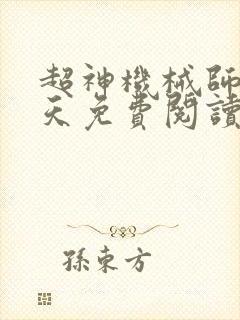 超神機械師
天免費閱讀
孫東方